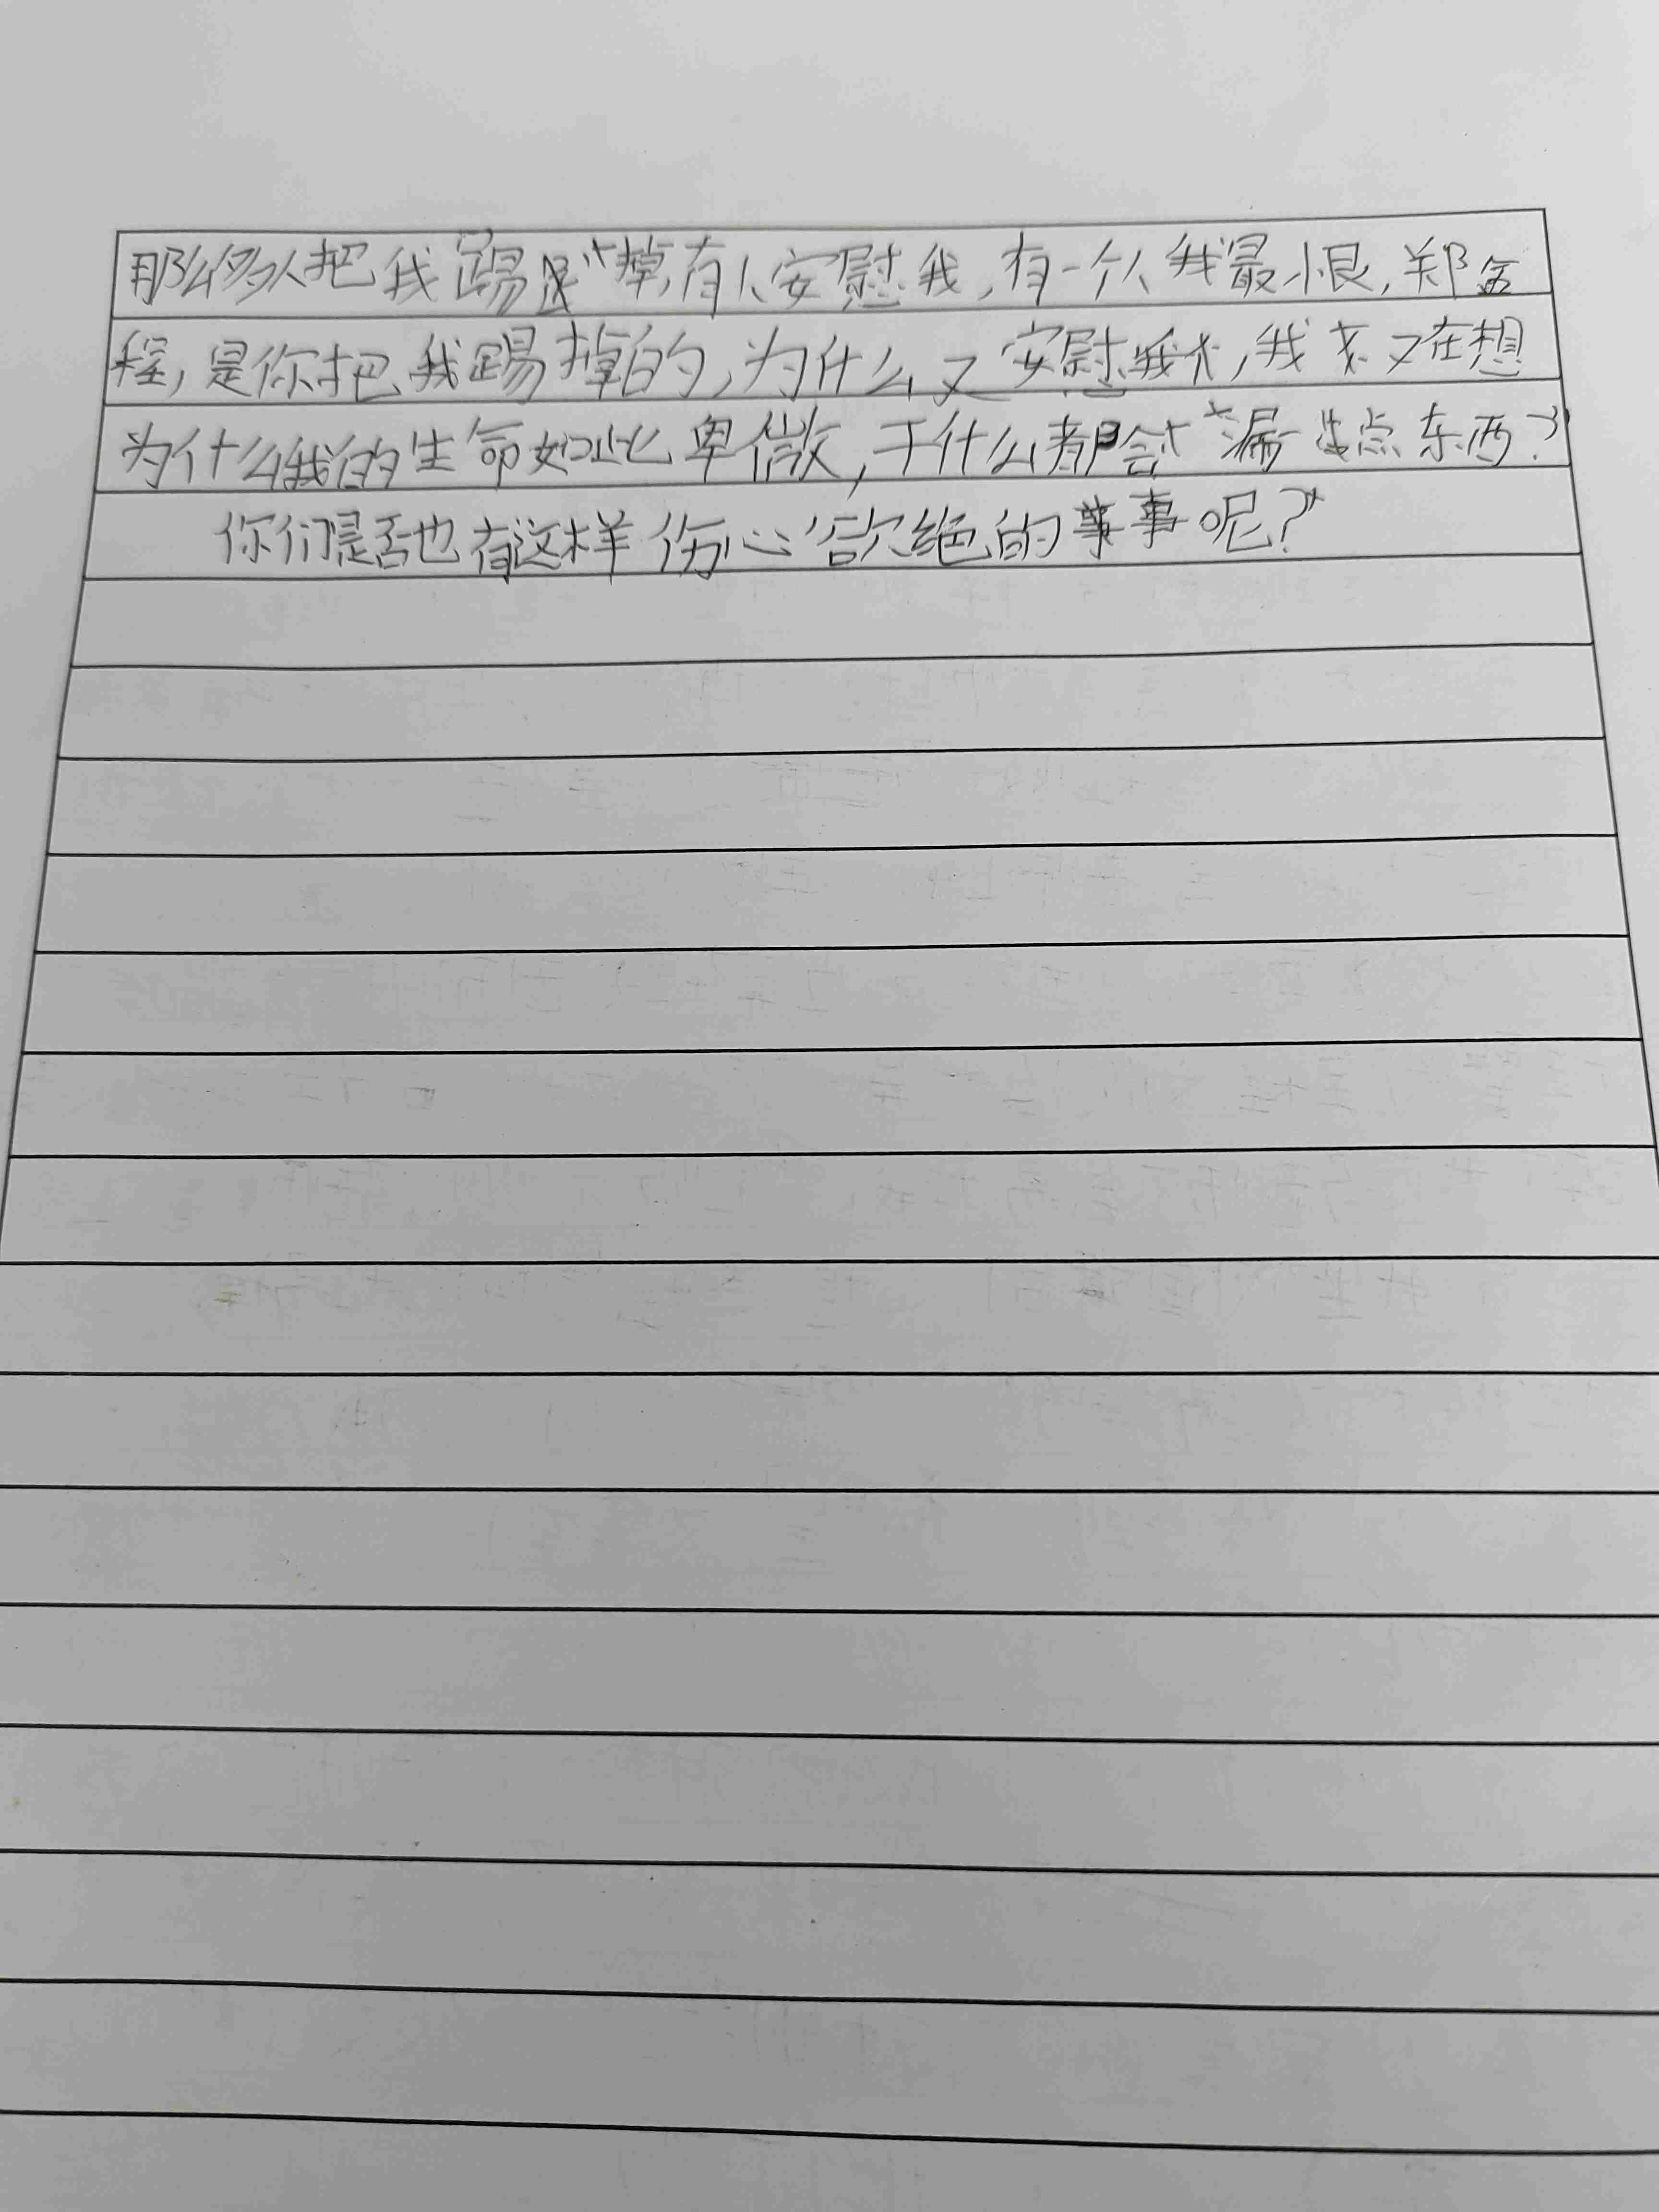 那么多人把我踢掉,有人安慰我,有一个人我最恨,郑金
程,是你把我踢掉的,为什么又安慰我,我又在想
为什么我的生命如此卑微,干什么都会漏点东西?
你们是否也有这样伤心欲绝的事呢?